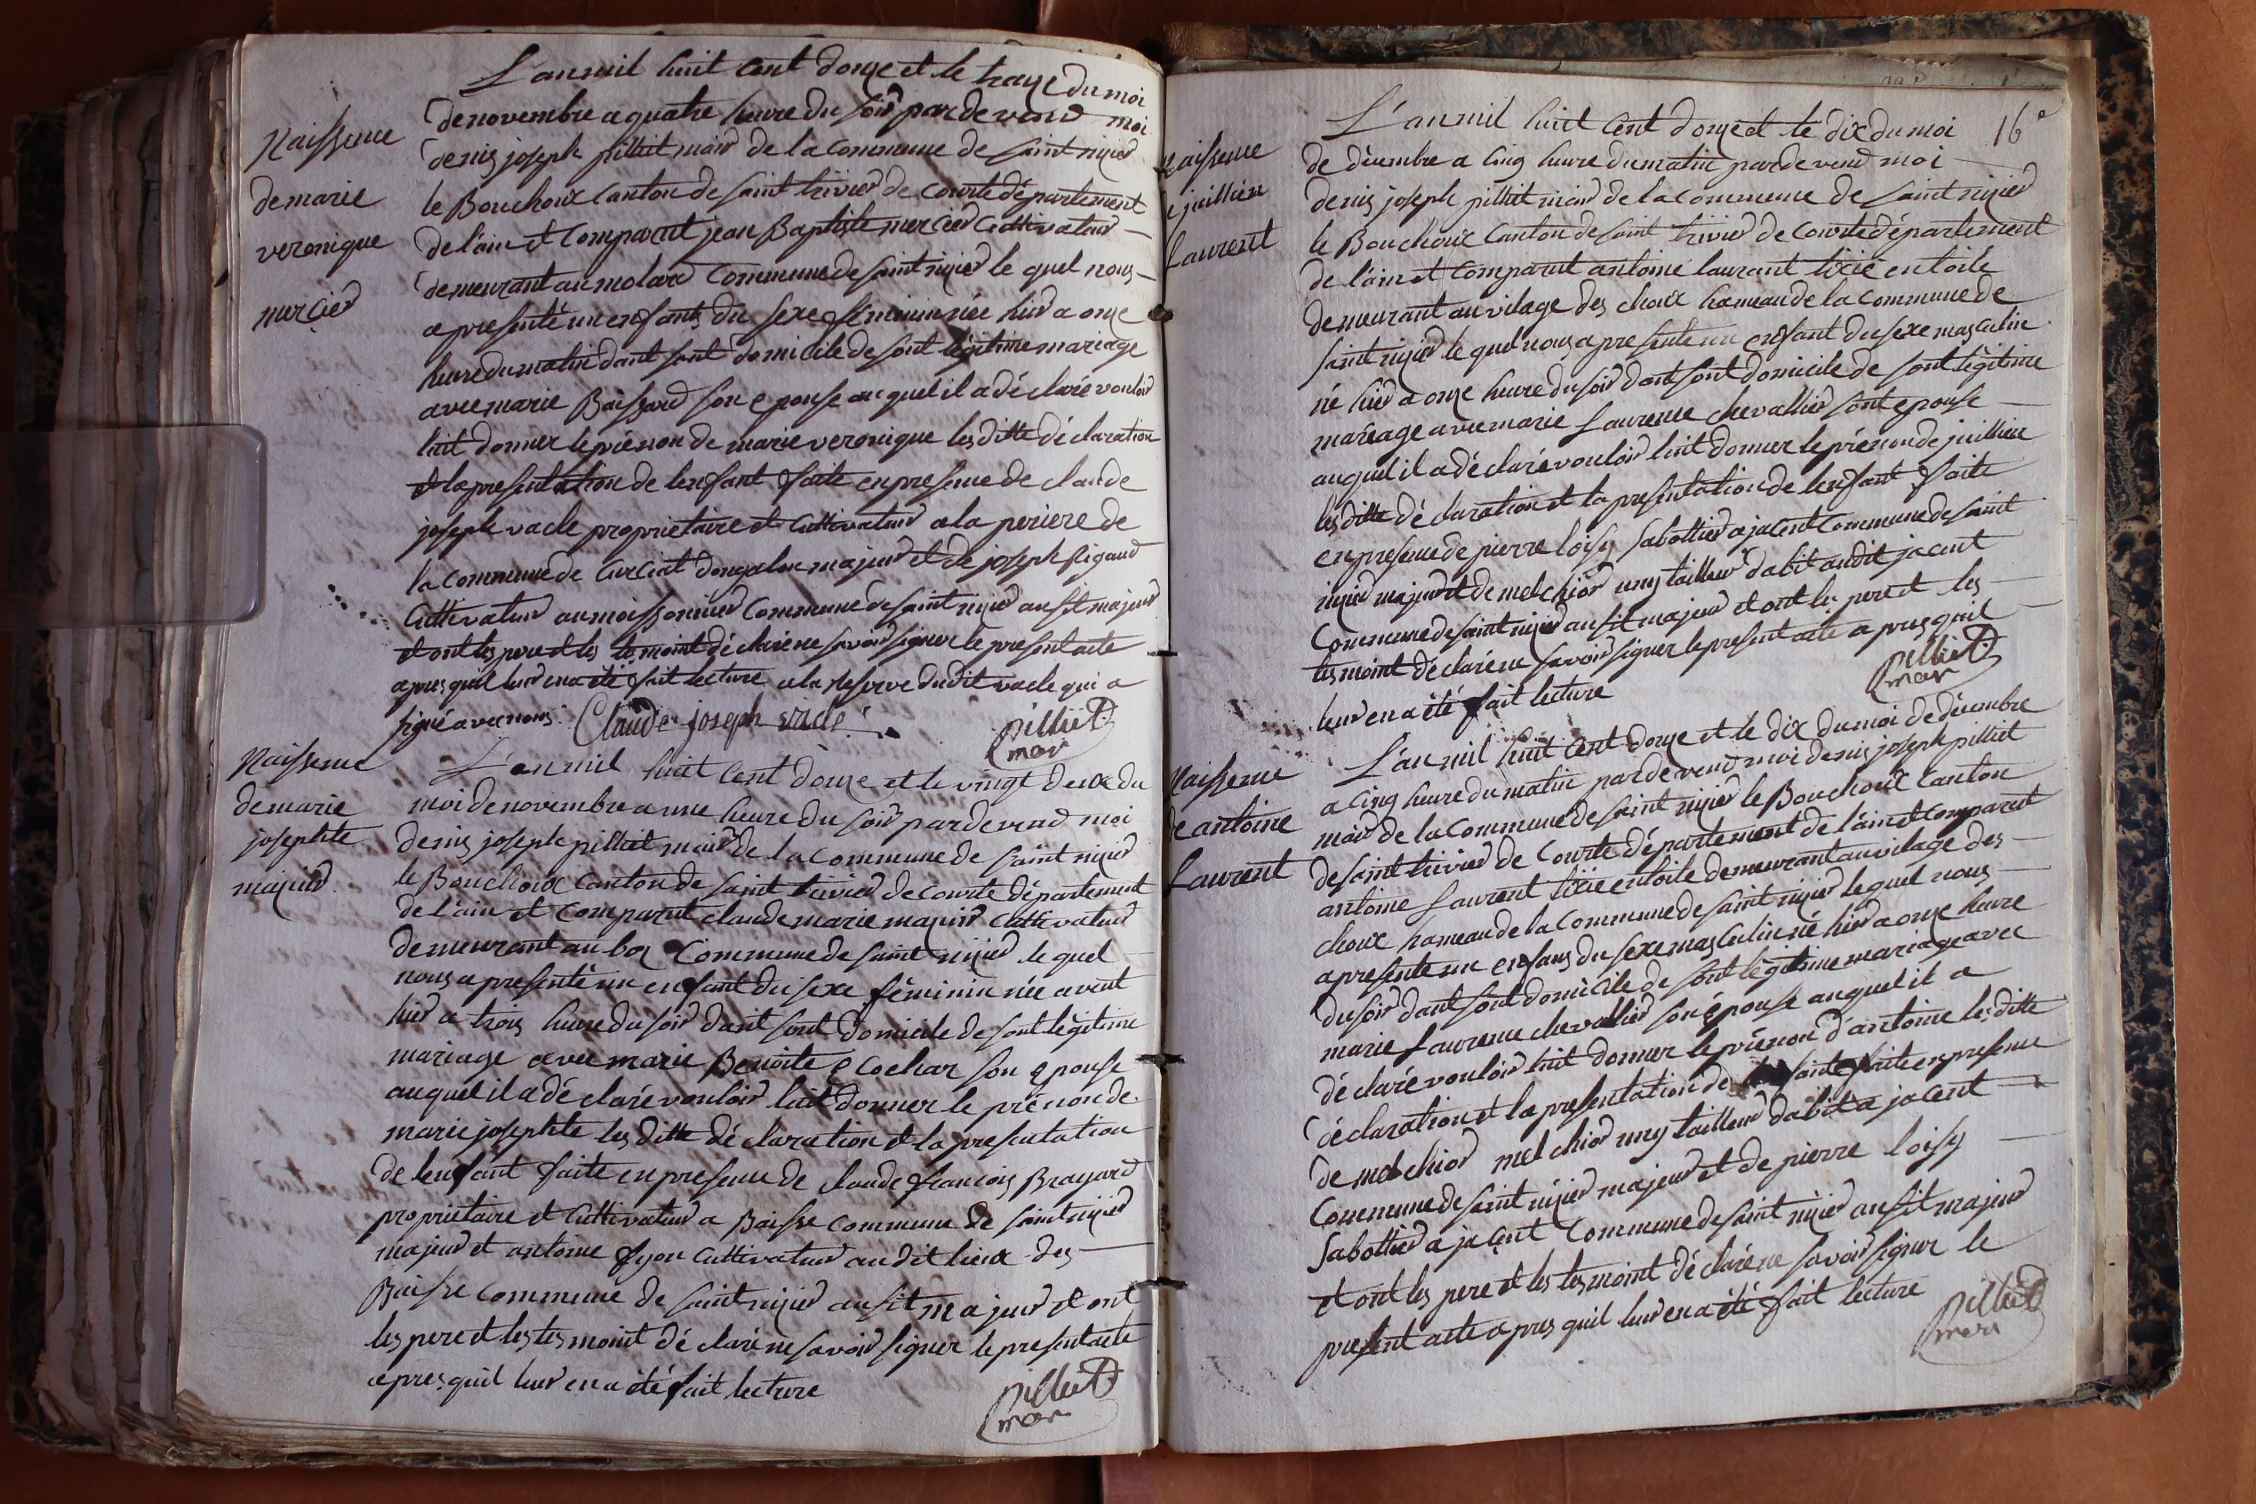 L'an mil huit cent douze et le traize du moi
de novembre a quatre heure du soir par devend moi
denis joseph pilliet mair de la commune de saint nizier
le Bouchoux canton de saint trivier de courte département
de l'ain et comparut jean Baptiste mercier cultivateur
demeurant au molard commune de saint nizier le quel nous
a presenté un enfant du sexe féminin née hier a onze
heure du matin dant sont domicile de sont légitime mariage
avec marie Baissard son epouse au quel il a déclaré vouloir
luit donner le prénon de marie veronique les ditte déclaration
et la presentation de lenfant faite en presence de claude
joseph vacle proprietaire et cultivateur a la periere de
la commune de curciat dongalon majeur et de joseph Rigaud
cultivateur au moissonnier commune de saint nizier ausit majeur
et ont les pere et les tesmoint déclaré ne savoir signer le present acte
apres quil leur en a été fait lecture a la reserve dudit vacle qui a
signé avec nous Claude joseph vacle
pilliet
mair
Naissence
de marie
veronique
mercier
L'an mil huit cent douze et le vingt deux du
moi de novembre a une heure du soir par devend moi
denis joseph pilliet mair de la commune de saint nizier
le Bouchoux canton de saint trivier de courte département
de l'ain et comparut claude marie majeur cultivateur
demeurant au boz commune de saint nizier le quel
nous a presenté un enfant du sexe féminin née avent
hier a trois heure du soir dant sont domicile de sont légitime
mariage avec marie Benoite ecochar son epouse
au quel il a déclaré vouloir luit donner le prénon de
marie josephte les ditte déclaration et la presentation
de lenfant faite en presence de claude françois Brayard
proprietaire et cultivateur a Baisse commune de saint nizier
majeur et antoine fyon cultivateur au dit lieux des
Baisse commune de saint nizier ausit majeur et ont
les pere et les tesmoint déclaré ne savoir signer le present acte
apres quil leur en a été fait lecture
pilliet
mair
Naissence
de marie
josephte
majeur
16e
L'an mil huit cent douze et le dix du moi
de décembre a cinq heure du matin par devend moi
denis joseph pilliet mair de la commune de saint nizier
le Bouchoux canton de saint trivier de courte département
de l'ain et comparut antoine laurant tixié en toile
demeurant au vilage des choux hameau de la commune de
saint nizier le quel nous a presente un enfant du sexe masculin
né hier a onze heure du soir dant sont domicile de sont légitime
mariage avec marie Laurence chevallier sont epouse
au quel il a déclaré vouloir luit donner le prénon de juillien
les ditte déclaration et la presentation de lenfant faite
en presence de pierre loisy sabottier a jacent commune de saint
nizier majeur et de melchior uny tailleur dabit audit jacent
commune de saint nizier ausit majeur et ont les pere et les
tesmoint déclaré ne savoir signer le present acte apres quil
leur en a été fait lecture
pilliet
mair
Naissence
de juillien
Laurent
L'an mil huit cent douze et le dix du moi de décembre
a cinq heure du matin par devend moi denis joseph pilliet
mair de la commune de saint nizier le Bouchoux canton
de saint trivier de courte département de l'ain et comparut
antoine Laurent tixié en toile demeurant au vilage des
choux hameau de la commune de saint nizier le quel nous
a presente un enfans du sexe masculin né hier a onze heure
du soir dant sont domicile de sont légitime mariage avec
marie Laurence chevallier son épouse au quel il a
déclaré vouloir luit donner le prénon d'antoine les ditte
déclaration et la presentation de faite en presence
de melchior melchior uny tailleur dabit a jacent
commune de saint nizier majeur et de pierre loisy
sabottier a jacent commune de saint nizier ausit majeur
et ont les pere et les tesmoint déclaré ne savoir signer le
present acte apres quil leur en a été fait lecture
pilliet
mair
Naissence
de antoine
Laurent